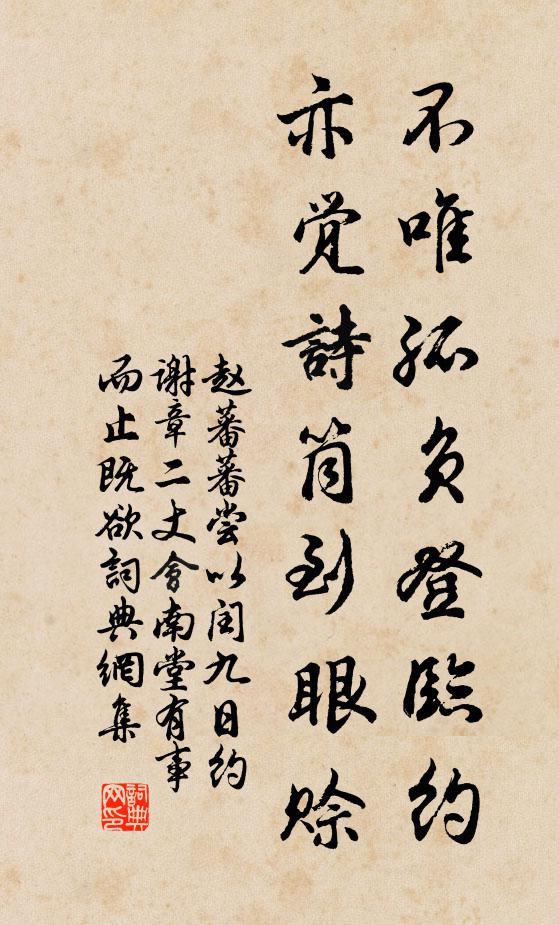 不唯孤负登临约
亦觉詩筒到眼赊
赵蕃蕃尝以闰九日约
谢章二丈會南堂有事
而止既欲詞典網集
詞典网印